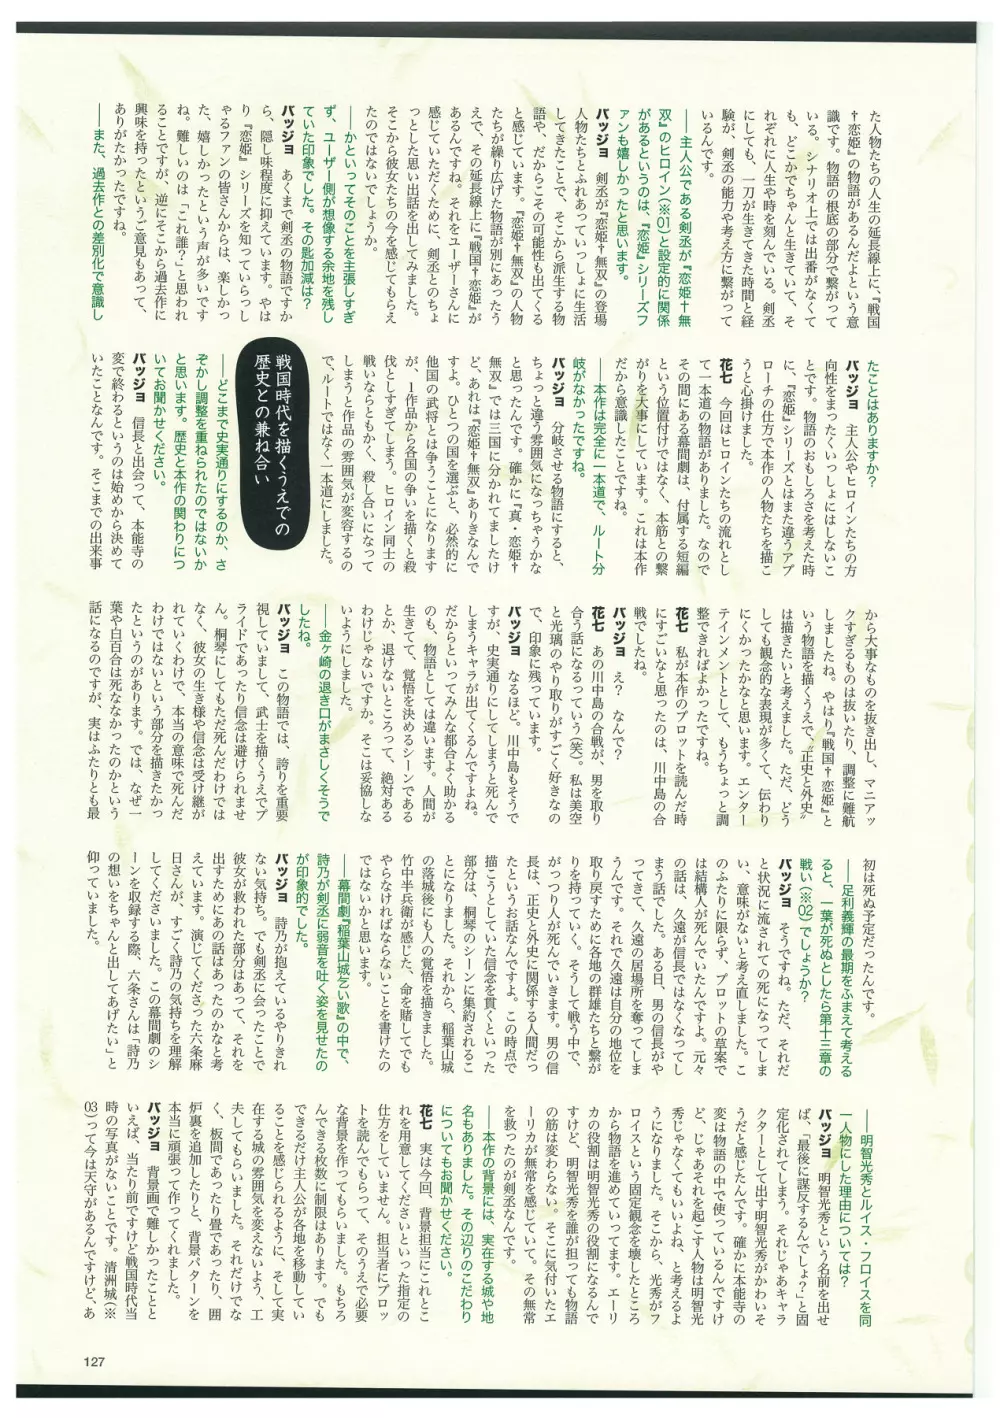 た人物たちの人生の延長線上に、『戦国
†恋姫』の物語があるんだよという意
識です。物語の根底の部分で繋がって
いる。シナリオ上では出番がなくて
も、どこかでちゃんと生きていて、そ
れぞれに人生や時を刻んでいる。剣丞
にしても、一刀が生きてきた時間と経
験が、剣丞の能力や考え方に繋がって
いるんです。
――主人公である剣丞が『恋姫†無
双』のヒロイン(※01)と設定的に関係
があるというのは、『恋姫』シリーズフ
ァンも嬉しかったと思います。
バッジョ 剣丞が『恋姫†無双』の登場
人物たちとふれあっていっしょに生活
してきたことで、そこから派生する物
語や、だからこその可能性も出てくる
と感じています。『恋姫†無双』の人物
たちが繰り広げた物語が別にあったう
えで、その延長線上に『戦国†恋姫』が
あるんですね。それをユーザーさんに
感じていただくために、剣丞とのちょ
っとした思い出話を出してみました。
そこから彼女たちの今を感じてもらえ
たのではないでしょうか。
――かといってそのことを主張しすぎ
ず、ユーザー側が想像する余地を残し
ていた印象でした。その匙加減は？
バッジョ あくまで剣丞の物語ですか
ら、隠し味程度に抑えています。やは
り『恋姫』シリーズを知っていらっし
ゃるファンの皆さんからは、楽しかっ
た、嬉しかったという声が多いです
ね。難しいのは「これ誰？」と思われ
ることですが、逆にそこから過去作に
興味を持ったというご意見もあって、
ありがたかったですね。
――また、過去作との差別化で意識し
たことはありますか？
バッジョ 主人公やヒロインたちの方
向性をまったくいっしょにはしないこ
とです。物語のおもしろさを考えた時
に、『恋姫』シリーズとはまた違うアプ
ローチの仕方で本作の人物たちを描こ
うと心掛けました。
花七 今回はヒロインたちの流れとし
て一本道の物語がありました。なので
その間にある幕間劇は、付属する短編
という位置付けではなく、本筋との繋
がりを大事にしています。これは本作
だから意識したことですね。
――本作は完全に一本道で、ルート分
岐がなかったですね。
バッジョ 分岐させる物語にすると、
ちょっと違う雰囲気になっちゃうかな
と思ったんです。確かに『真・恋姫†
無双』では三国に分かれてましたけ
ど、あれは『恋姫†無双』ありきなんで
すよ。ひとつの国を選ぶと、必然的に
他国の武将とは争うことになります
が、1作品から各国の争いを描くと殺
伐としすぎてしまう。ヒロイン同士の
戦いならともかく、殺し合いになって
しまうと作品の雰囲気が変容するの
で、ルートではなく一本道にしました。
戦国時代を描くうえでの
歴史との兼ね合い
――どこまで史実通りにするのか、さ
ぞかし調整を重ねられたのではないか
と思います。歴史と本作の関わりにつ
いてお聞かせください。
バッジョ 信長と出会って、本能寺の
変で終わるというのは始めから決めて
いたことなんです。そこまでの出来事
から大事なものを抜き出し、マニアッ
クすぎるものは抜いたり、調整に難航
しましたね。やはり『戦国†恋姫』と
いう物語を描くうえで、“正史と外史”
は描きたいと考えました。ただ、どう
しても観念的な表現が多くて、伝わり
にくかったかなと思います。エンター
テインメントとして、もうちょっと調
整できればよかったですね。
花七 私が本作のプロットを読んだ時
にすごいなと思ったのは、川中島の合
戦でしたね。
バッジョ え？ なんで？
花七 あの川中島の合戦が、男を取り
合う話になるっていう（笑）。私は美空
と光璃のやり取りがすごく好きなの
で、印象に残っています。
バッジョ なるほど。川中島もそうで
すが、史実通りにしてしまうと死んで
しまうキャラが出てくるんですよね。
だからといってみんな都合よく助かる
のも、物語としては違います。人間が
生きてて、覚悟を決めるシーンである
とか、退けないところって、絶対ある
わけじゃないですか。そこは妥協しな
いようにしました。
――金ヶ崎の退き口がまさしくそうで
したね。
バッジョ この物語では、誇りを重要
視していまして、武士を描くうえでプ
ライドであったり信念は避けられませ
ん。桐琴にしてもただ死んだわけでは
なく、彼女の生き様や信念は受け継が
れていくわけで、本当の意味で死んだ
わけではないという部分を描きたかっ
たというのがあります。では、なぜ一
葉や白百合は死ななかったのかという
話になるのですが、実はふたりとも最
初は死ぬ予定だったんです。
――足利義輝の最期をふまえて考える
と、一葉が死ぬとしたら第十三章の
戦い(※02)でしょうか？
バッジョ そうですね。ただ、それだ
と状況に流されての死になってしま
い、意味がないと考え直しました。こ
のふたりに限らず、プロットの草案で
は結構人が死んでいたんですよ。元々
の話は、久遠が信長ではなくなってし
まう話でした。ある日、男の信長がや
ってきて、久遠の居場所を奪ってしま
うんです。それで久遠は自分の地位を
取り戻すために各地の群雄たちと繋が
りを持っていく。そうして戦う中で、
がっつり人が死んでいきます。男の信
長は、正史と外史に関係する人間だっ
たというお話なんですよ。この時点で
描こうとしていた信念を貫くといった
部分は、桐琴のシーンに集約されるこ
とになりました。それから、稲葉山城
の落城後にも人の覚悟を描きました。
竹中半兵衛が感じた、命を賭してでも
やらなければならないことを書けたの
ではないかと思います。
――幕間劇『稲葉山城乞い歌』の中で、
詩乃が剣丞に弱音を吐く姿を見せたの
が印象的でした。
バッジョ 詩乃が抱えているやりきれ
ない気持ち。でも剣丞に会ったことで
彼女が救われた部分はあって、それを
出すためにあの話はあったのかなと考
えています。演じてくださった六条麻
日さんが、すごく詩乃の気持ちを理解
してくださいました。この幕間劇のシ
ーンを収録する際、六条さんは「詩乃
の想いをちゃんと出してあげたい」と
仰っていました。
――明智光秀とルイス・フロイスを同
一人物にした理由については？
バッジョ 明智光秀という名前を出せ
ば、「最後に謀反するんでしょ？」と固
定化されてしまう。それじゃあキャラ
クターとして出す明智光秀がかわいそ
うだと感じたんです。確かに本能寺の
変は物語の中で使っているんですけ
ど、じゃあそれを起こす人物は明智光
秀じゃなくてもいいよね、と考えるよ
うになりました。そこから、光秀がフ
ロイスという固定観念を壊したところ
から物語を進めていってます。エーリ
カの役割は明智光秀の役割になるんで
すけど、明智光秀を誰が担っても物語
の筋は変わらない。そこに気付いたエ
ーリカが無常を感じていて、その無常
を救ったのが剣丞なんです。
――本作の背景には、実在する城や地
名もありました。その辺りのこだわり
についてもお聞かせください。
花七 実は今回、背景担当にこれとこ
れを用意してくださいといった指定の
仕方をしていません。担当者にプロッ
トを読んでもらって、そのうえで必要
な背景を作ってもらいました。もちろ
んできる枚数に制限はあります。でも
できるだけ主人公が各地を移動してい
ることを感じられるように、そして実
在する城の雰囲気を変えないよう、工
夫してもらいました。それだけでな
く、板間であったり畳であったり、囲
炉裏を追加したりと、背景パターンを
本当に頑張って作ってくれました。
バッジョ 背景画で難しかったことと
いえば、当たり前ですけど戦国時代当
時の写真がないことです。清洲城(※
03)って今は天守があるんですけど、あ
127